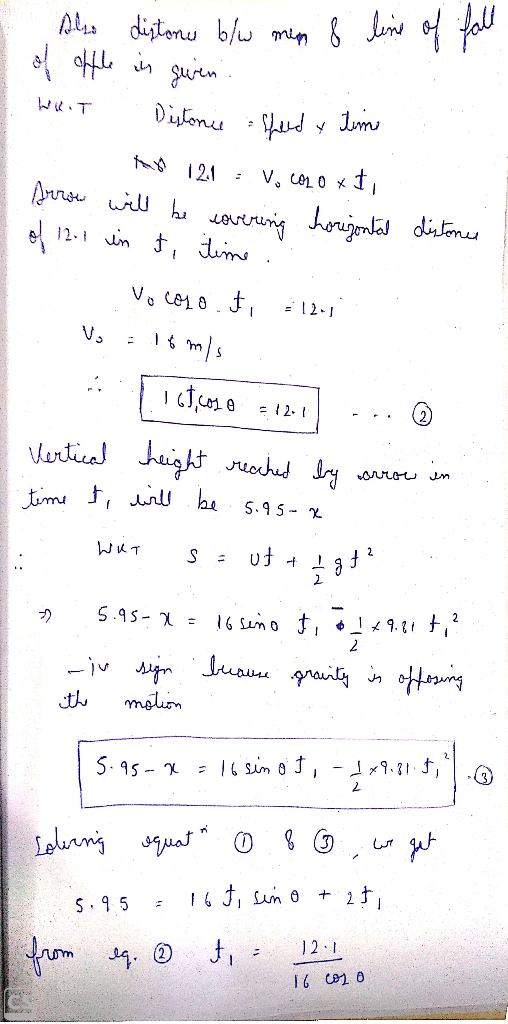 Also distance b/w man & line of fall
of apple is given.
WK.T Distance = Speed x time
12.1 = V₀ cosθ x t₁
Arrow will be covering horizontal distance
of 12.1 in t₁ time.
V₀ cosθ . t₁ = 12.1
V₀ = 16 m/s
∴ 16t₁cosθ = 12.1 - - - ②
Vertical height reached by arrow in
time t₁ will be 5.95 - x
∴ WKT s = ut + 1/2 g t²
⇒ 5.95 - x = 16 sinθ t₁ - 1/2 x 9.81 t₁²
-ive sign because gravity is opposing
the motion
5.95 - x = 16 sinθ t₁ - 1/2 x 9.81 . t₁² - ③
Solving equatⁿ ① & ③, we get
5.95 = 16 t₁ sinθ + 2t₁
from eq. ② t₁ = 12.1 / 16 cosθ